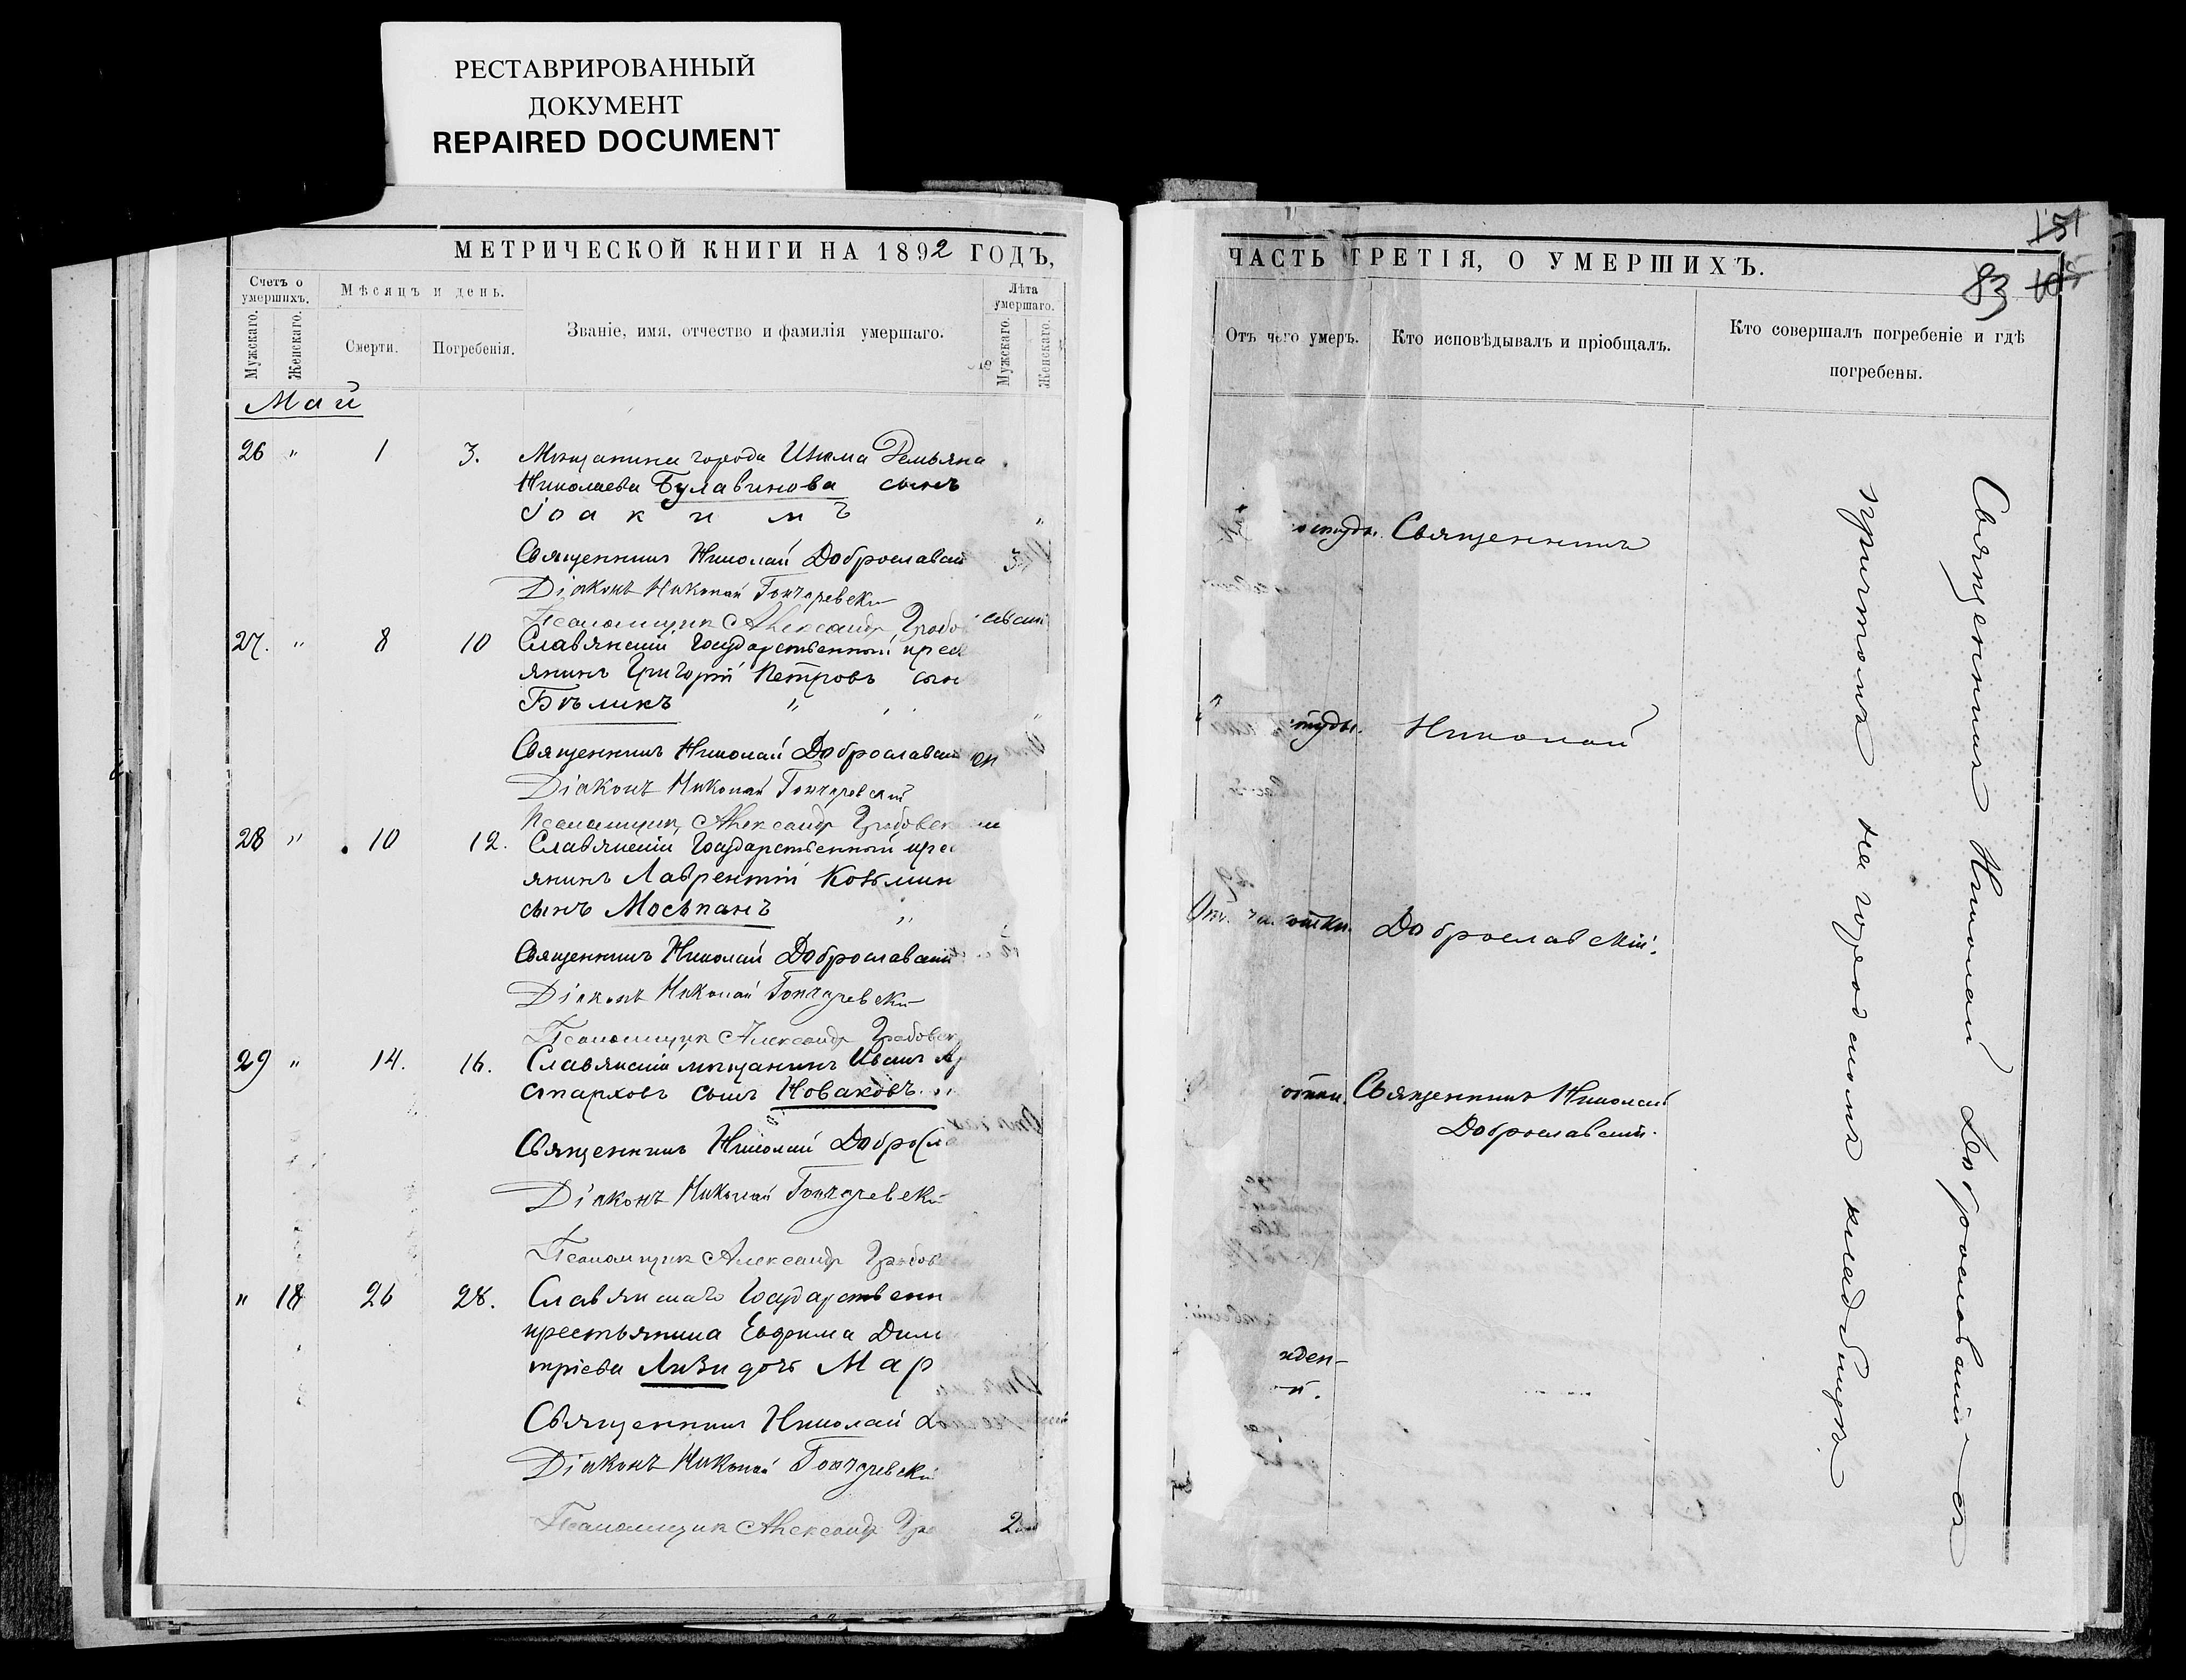 РЕСТАВРИРОВАННЫЙ
ДОКУМЕНТ
REPAIRED DOCUMENT
МЕТРИЧЕСКОЙ КНИГИ НА 1892 ГОДЪ,
Счетъ о умершихъ.
Мѣсяцъ и день.
Лѣта умершаго.
Мужскаго.
Женскаго.
Смерти.
Погребенія.
Званіе, имя, отчество и фамилія умершаго.
Мужскаго.
Женскаго.
Май
26 " 1 3. Мѣщанина города Изюма Демьяна
Николаева Булавинова сынъ
Іоакимъ
Священникъ Николай Доброславскій
Діаконъ Николай Гончаревскій
Псаломщикъ Александръ Грабовскій
27. " 8 10 Славянскій Государственный крест
янинъ Григорій Петровъ сын
Бѣликъ "
Священникъ Николай Доброславскій
Діаконъ Николай Гончаревскій
Псаломщикъ Александръ Грабовск
28 " 10 12. Славянскій Государственный крес
янинъ Лаврентій Козьмин
сынъ Мосьпанъ "
Священникъ Николай Доброславскій
Діаконъ Николай Гончаревскій
Псаломщикъ Александръ Грабовск
29 " 14. 16. Славянскій мѣщанинъ Иванъ Ар
старховъ сынъ Новаковъ. "
Священникъ Николай Добросла
Діаконъ Николай Гончаревскій
Псаломщикъ Александръ Грабов
" 18 26 28. Славянскаго Государственн
крестьянина Евфима Дим
тріева Лизи дочь Мар
Священникъ Николай Д
Діаконъ Николай Гончаревскій
Псаломщикъ Александръ Гра
ЧАСТЬ ТРЕТІЯ, О УМЕРШИХЪ.
151
83 105
Отъ чего умеръ.
Кто исповѣдывалъ и пріобщалъ.
Кто совершалъ погребеніе и гдѣ погребены.
Священникъ
Николай
Доброславскій.
Священникъ Николай
Доброславскій.
Священникъ Николай Доброславскій съ
причтомъ на городскомъ кладбищѣ